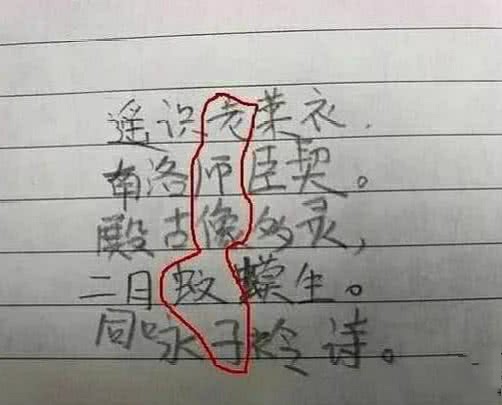 遥识老莱衣，
南洛师臣契。
殿古像多灵，
二日蚊蟆生。
同咏子怜诗。